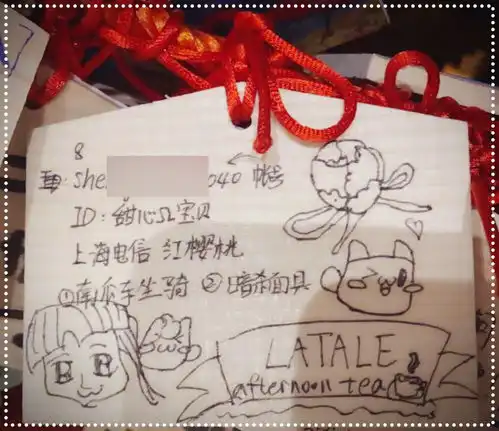 8
She 040 帐号
ID：甜心Ω宝贝
上海电信 红樱桃
①南瓜车坐骑 ②暗杀面具
LATALE
afternoon tea